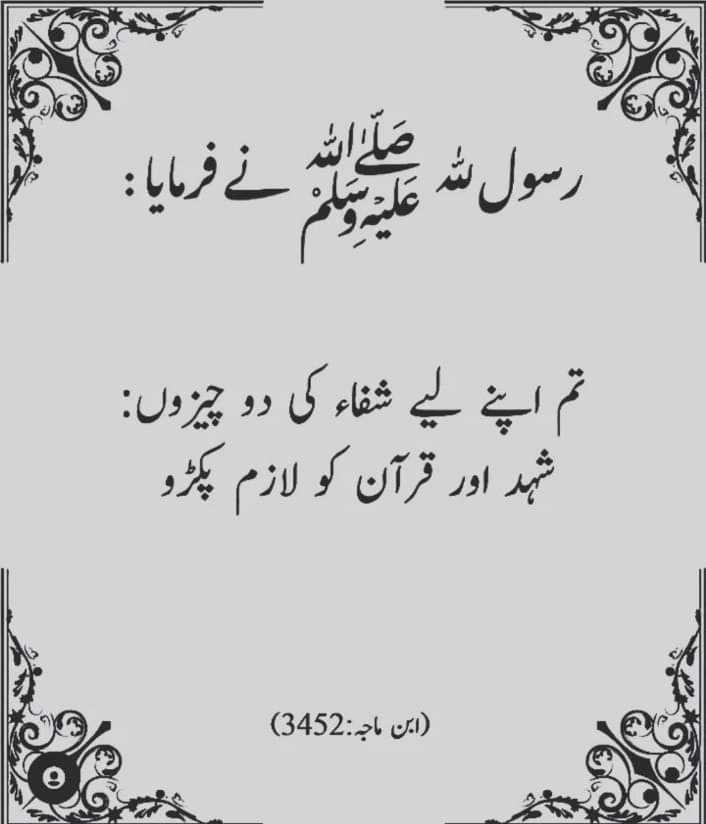 رسول للہ صَلَّے اللہ عَلَیْہِ وَسَلَّمْ نے فرمایا:
تم اپنے لیے شفاء کی دو چیزوں:
شہد اور قرآن کو لازم پکڑو
(ابن ماجہ:3452)